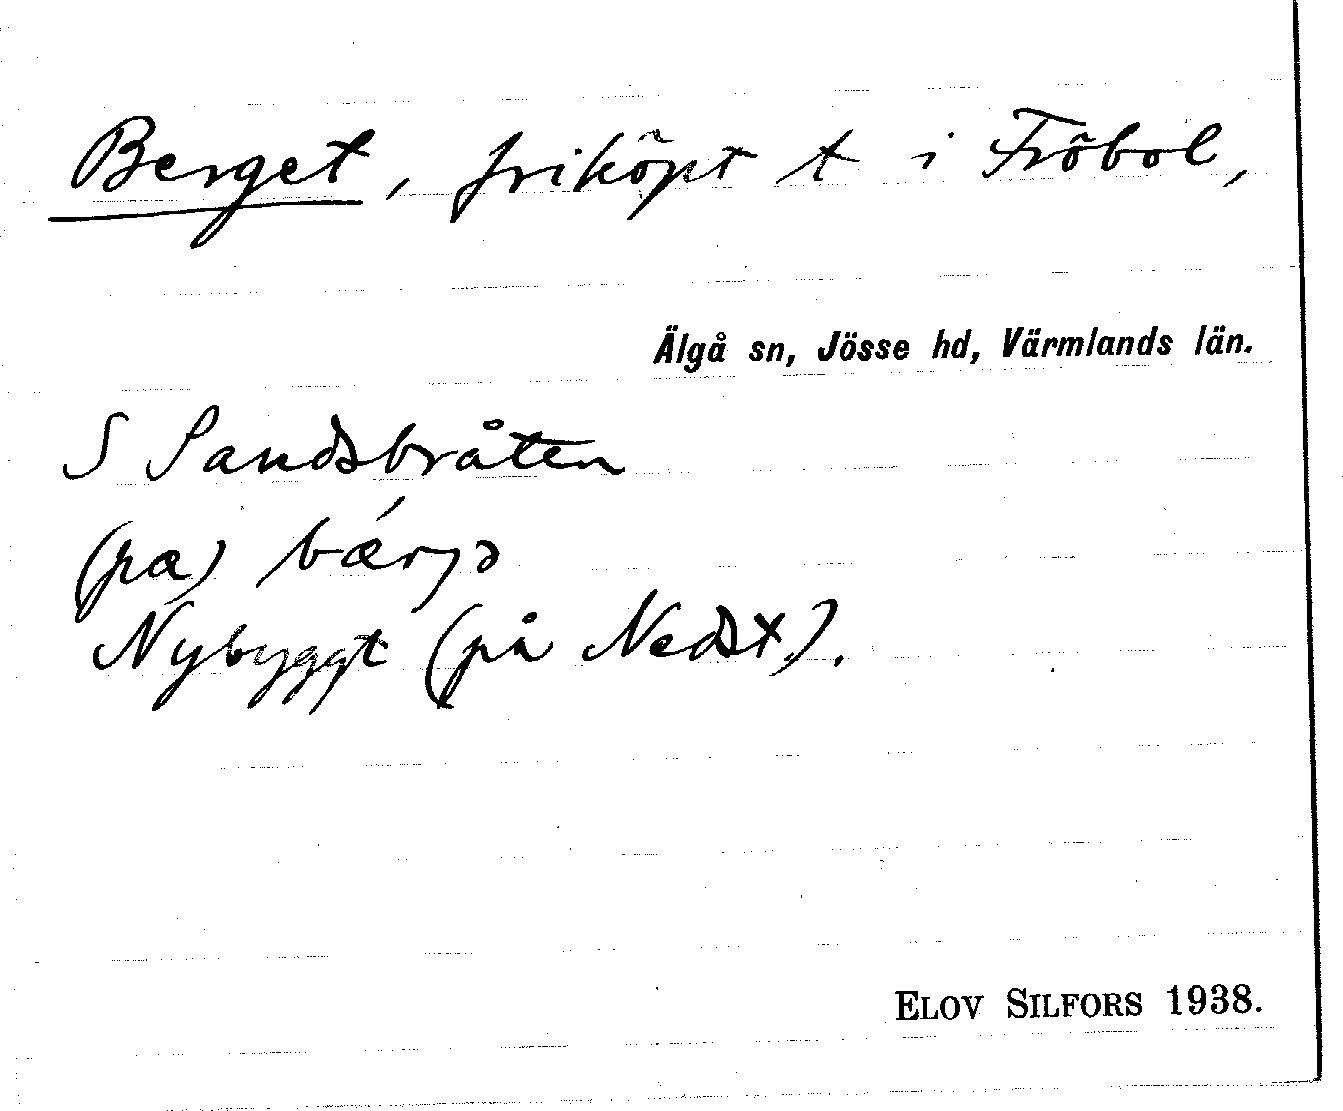 Berget, friköpt t i Fröbol,
Älgå sn, Jösse hd, Värmlands län.
S Sandsbråten
(pa) bǽrjə
Nybyggt (på Nedst.).
ELOV SILFORS 1938.